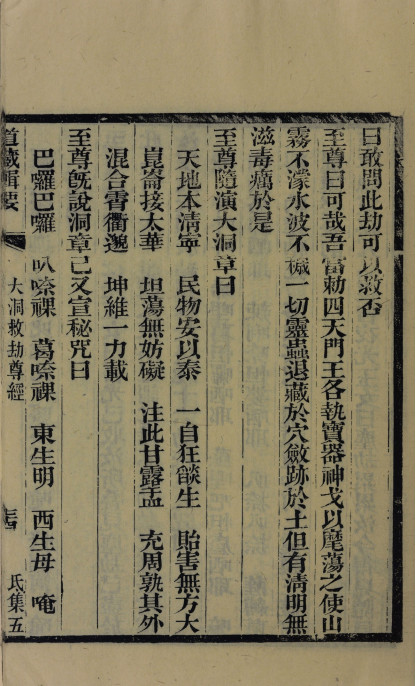 曰敢問此劫可以救否
至尊曰可哉吾當勅四天門王各執寶器神戈以麾蕩之使山
霧不濛水波不穢一切靈蟲退藏於穴斂跡於土但有清明無
滋毒癘於是
至尊隨演大洞章曰
天地本清寧 民物安以泰 一自狂燄生 貽害無方大
崑崙接太華 坦蕩無妨礙 注此甘露盂 充周孰其外
混合霄衢邈 坤維一力載
至尊旣說洞章已又宣秘咒曰
巴囉巴囉 叭唵祼 葛唵祼 東生明 西生母 唵
道藏輯要 大洞救劫尊經 氐集五